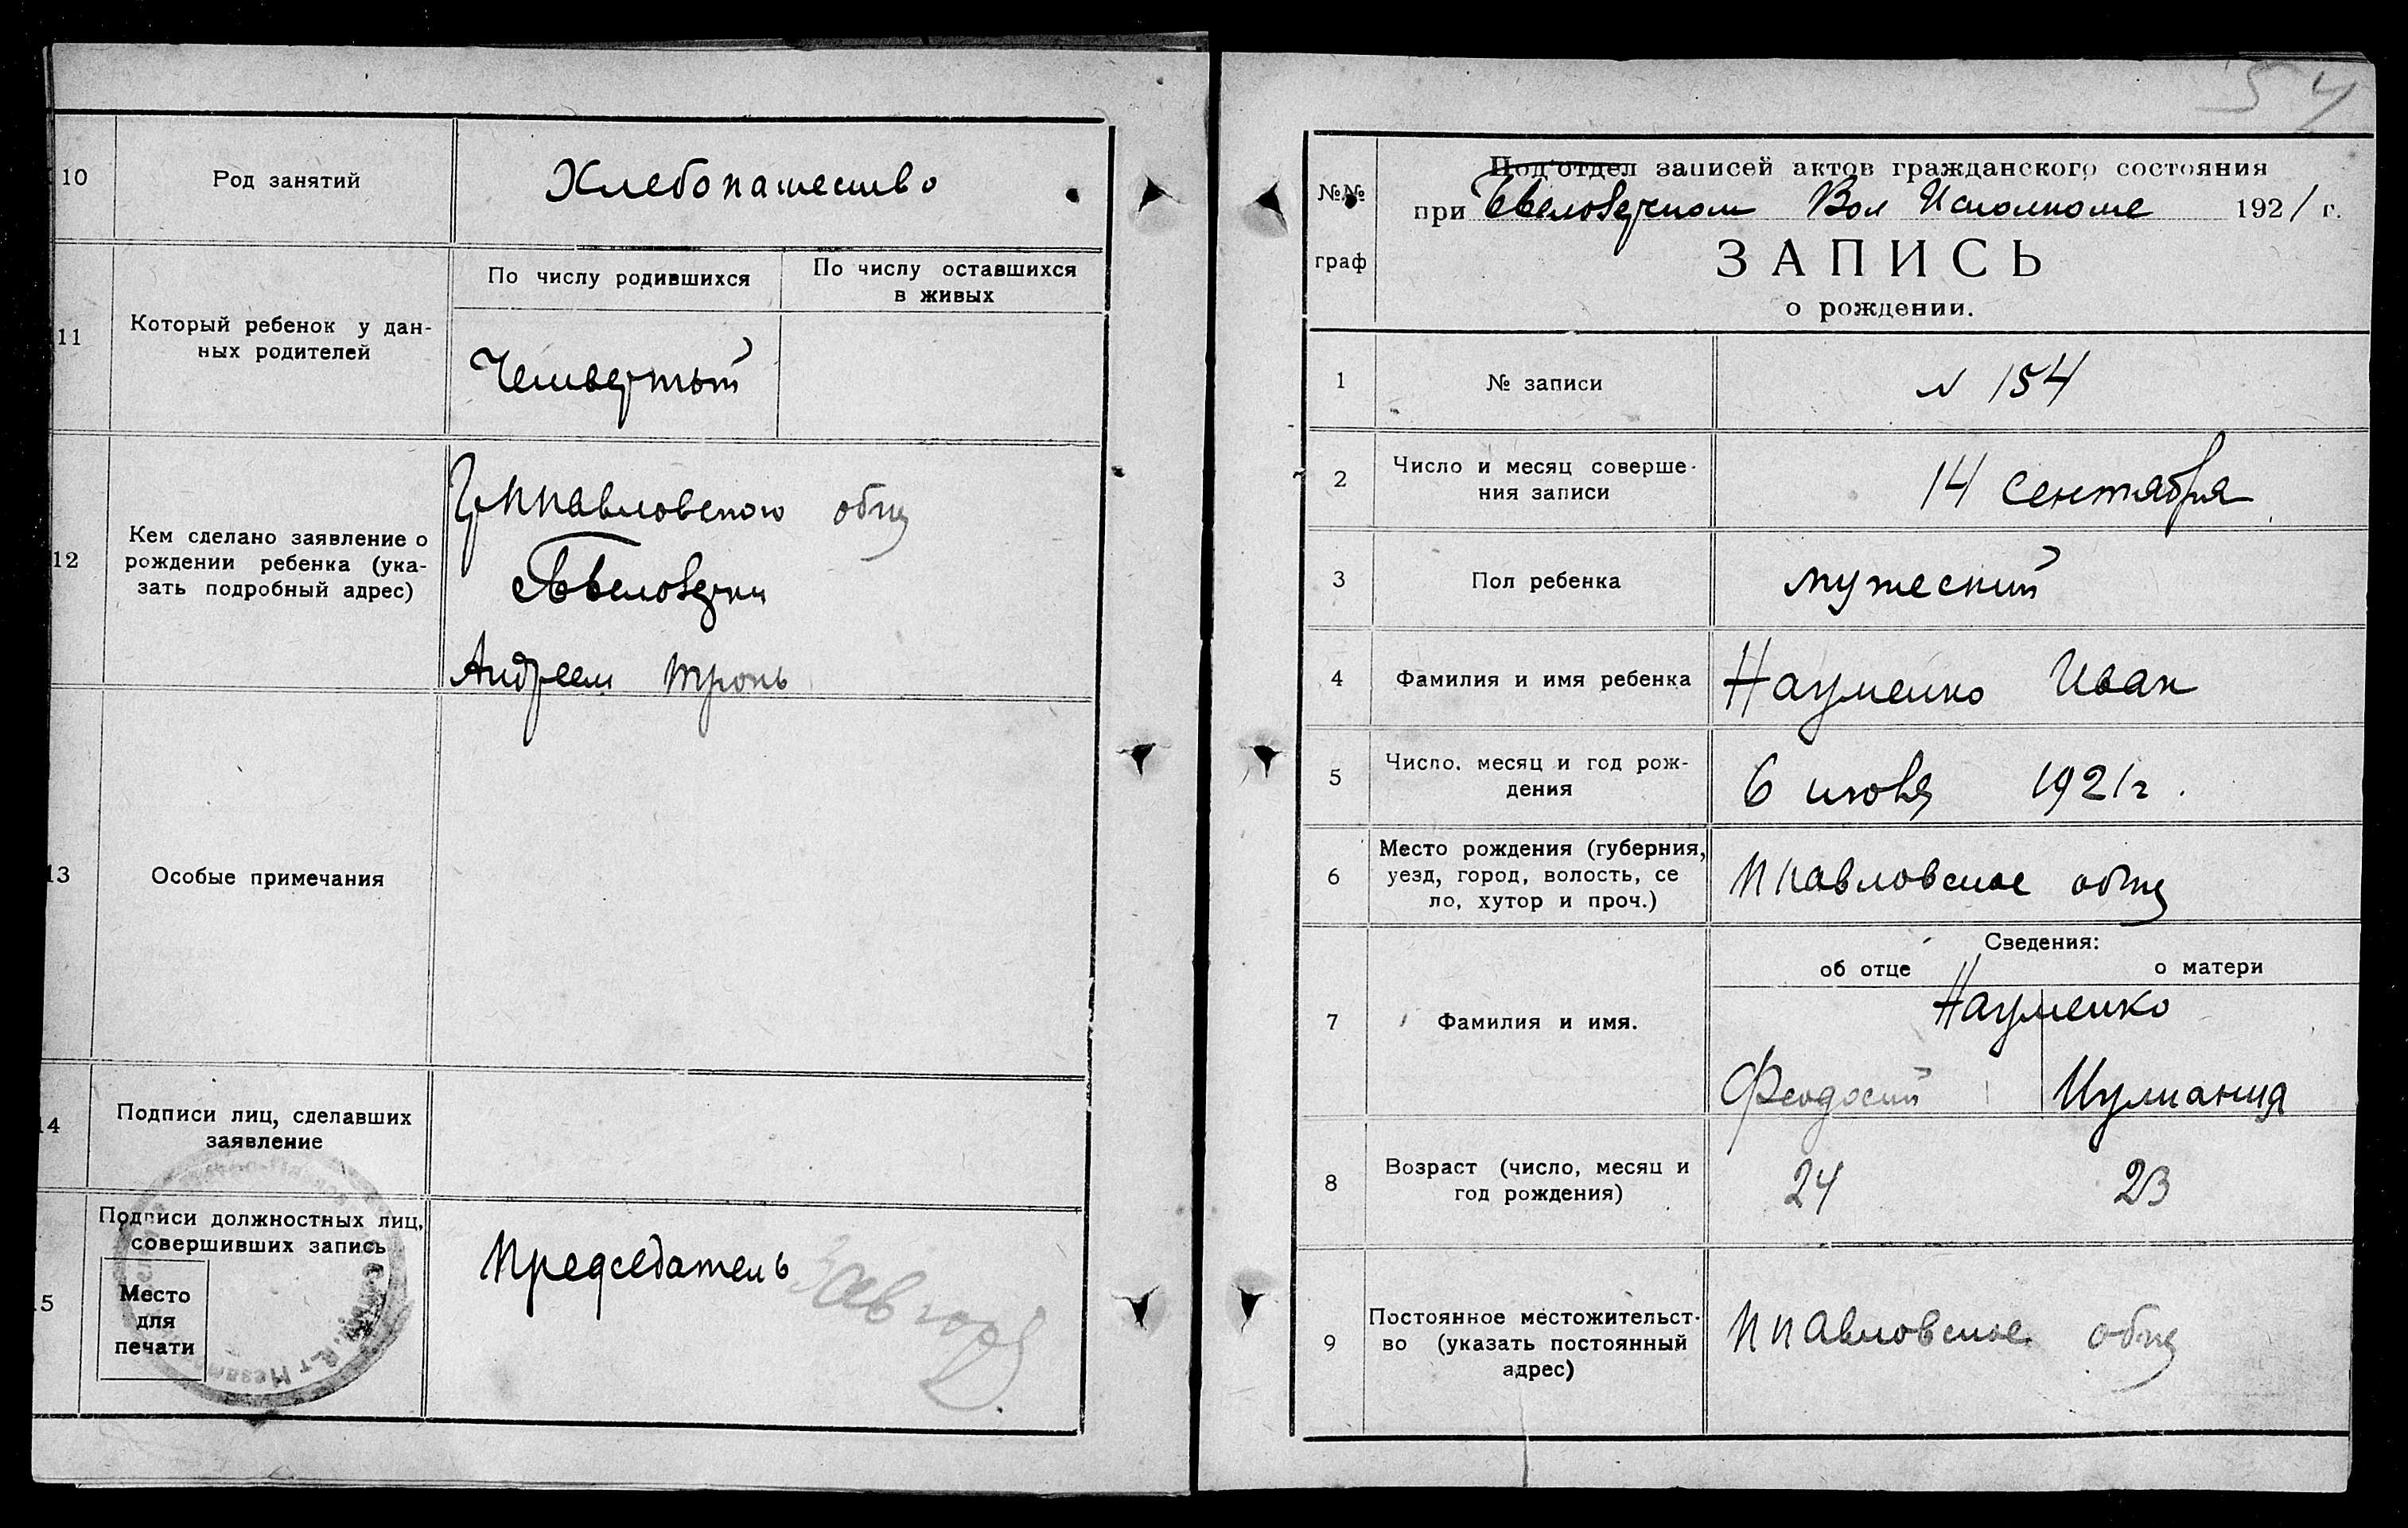 10 Род занятий Хлебопашество
11 Который ребенок у дан-
ных родителей
По числу родившихся
По числу оставшихся
в живых
Четвертый
12 Кем сделано заявление о
рождении ребенка (ука-
зать подробный адрес)
Ппавловского общ
Андреем
13 Особые примечания
14 Подписи лиц, сделавших
заявление
15 Подписи должностных лиц,
совершивших запись
Место
для
печати
Председатель
54
№№
граф
Под'отдел записей актов гражданского состояния
при Вол Исполкоме 1921 г.
ЗАПИСЬ
о рождении.
1 № записи N 154
2 Число и месяц соверше-
ния записи
14 сентября
3 Пол ребенка мужеский
4 Фамилия и имя ребенка Науменко Иван
5 Число, месяц и год рож-
дения
6 1921 г.
6 Место рождения (губерния,
уезд, город, волость, се
ло, хутор и проч.)
Ппавловское общ
Сведения:
об отце о матери
7 Фамилия и имя.
Науменко
Феодосий Иулиания
8 Возраст (число, месяц и
год рождения)
24 23
9 Постоянное местожительст-
во (указать постоянный
адрес)
Ппавловское общ